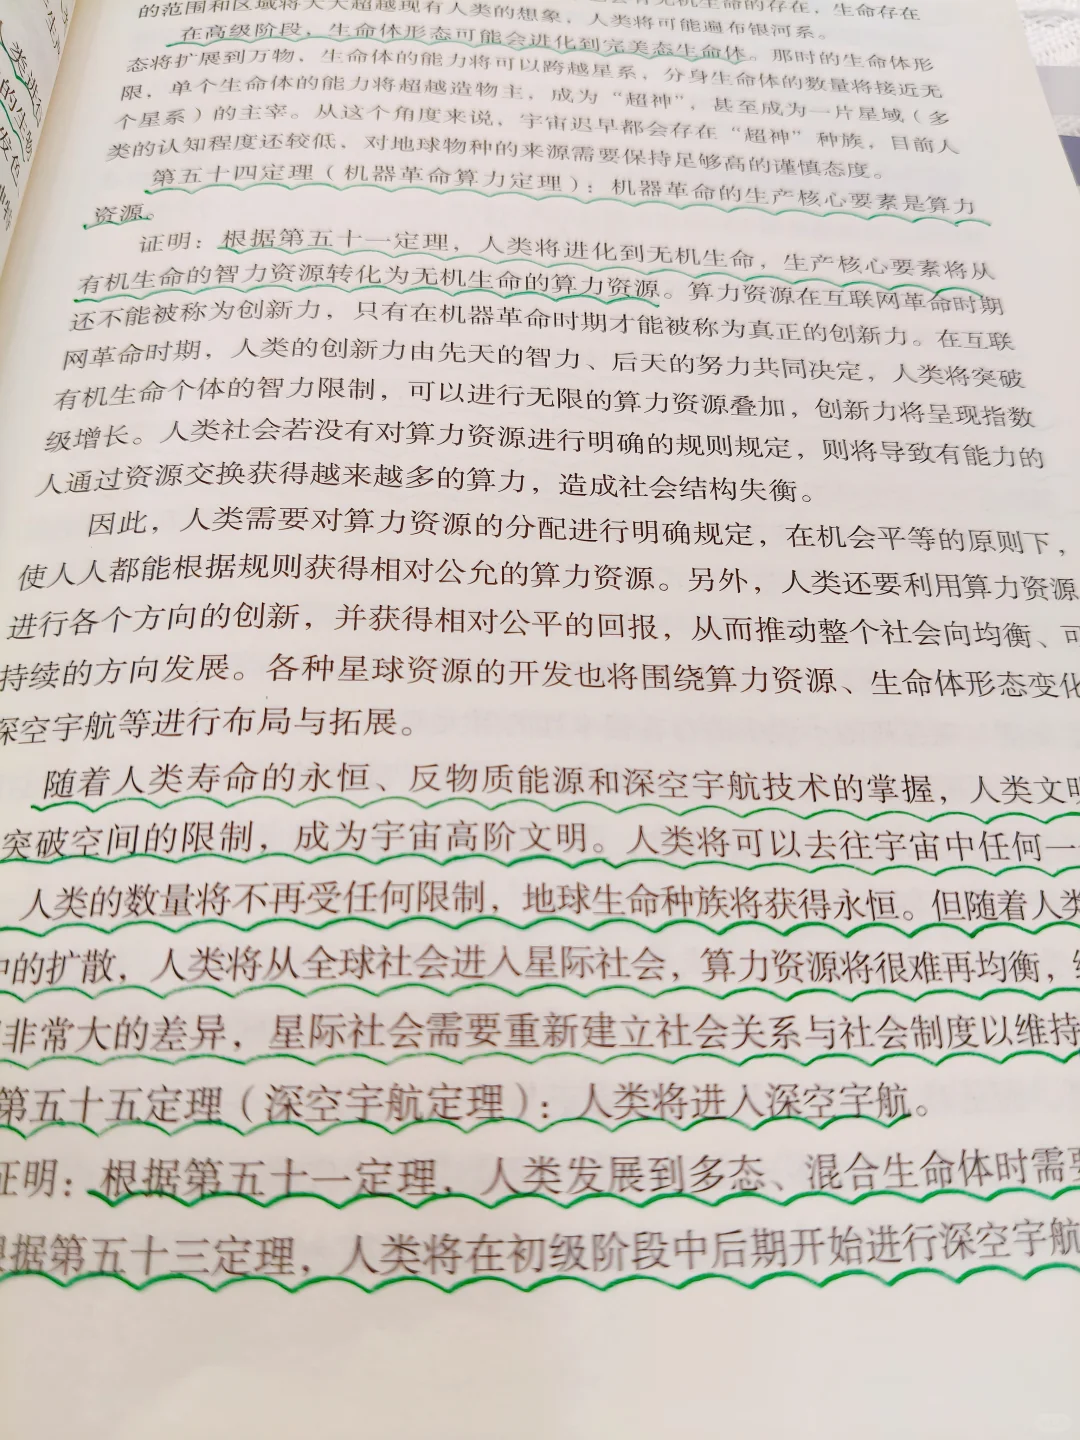 的范围和区域将大大超越现有人类的想象，人类将可能遍布银河系。
在高级阶段，生命体形态可能会进化到完美态生命体。那时的生命体形
态将扩展到万物，生命体的能力将可以跨越星系，分身生命体的数量将接近无
限，单个生命体的能力将超越造物主，成为“超神”，甚至成为一片星域（多
个星系）的主宰。从这个角度来说，宇宙迟早都会存在“超神”种族，目前人
类的认知程度还较低，对地球物种的来源需要保持足够高的谨慎态度。
第五十四定理（机器革命算力定理）：机器革命的生产核心要素是算力
资源。
证明：根据第五十一定理，人类将进化到无机生命，生产核心要素将从
有机生命的智力资源转化为无机生命的算力资源。算力资源在互联网革命时期
还不能被称为创新力，只有在机器革命时期才能被称为真正的创新力。在互联
网革命时期，人类的创新力由先天的智力、后天的努力共同决定，人类将突破
有机生命个体的智力限制，可以进行无限的算力资源叠加，创新力将呈现指数
级增长。人类社会若没有对算力资源进行明确的规则规定，则将导致有能力的
人通过资源交换获得越来越多的算力，造成社会结构失衡。
因此，人类需要对算力资源的分配进行明确规定，在机会平等的原则下，
使人人都能根据规则获得相对公允的算力资源。另外，人类还要利用算力资源
进行各个方向的创新，并获得相对公平的回报，从而推动整个社会向均衡、可
持续的方向发展。各种星球资源的开发也将围绕算力资源、生命体形态变化
深空宇航等进行布局与拓展。
随着人类寿命的永恒、反物质能源和深空宇航技术的掌握，人类文明
突破空间的限制，成为宇宙高阶文明。人类将可以去往宇宙中任何一
人类的数量将不再受任何限制，地球生命种族将获得永恒。但随着人类
中的扩散，人类将从全球社会进入星际社会，算力资源将很难再均衡，
非常大的差异，星际社会需要重新建立社会关系与社会制度以维持
第五十五定理（深空宇航定理）：人类将进入深空宇航。
证明：根据第五十一定理，人类发展到多态、混合生命体时需要
根据第五十三定理，人类将在初级阶段中后期开始进行深空宇航